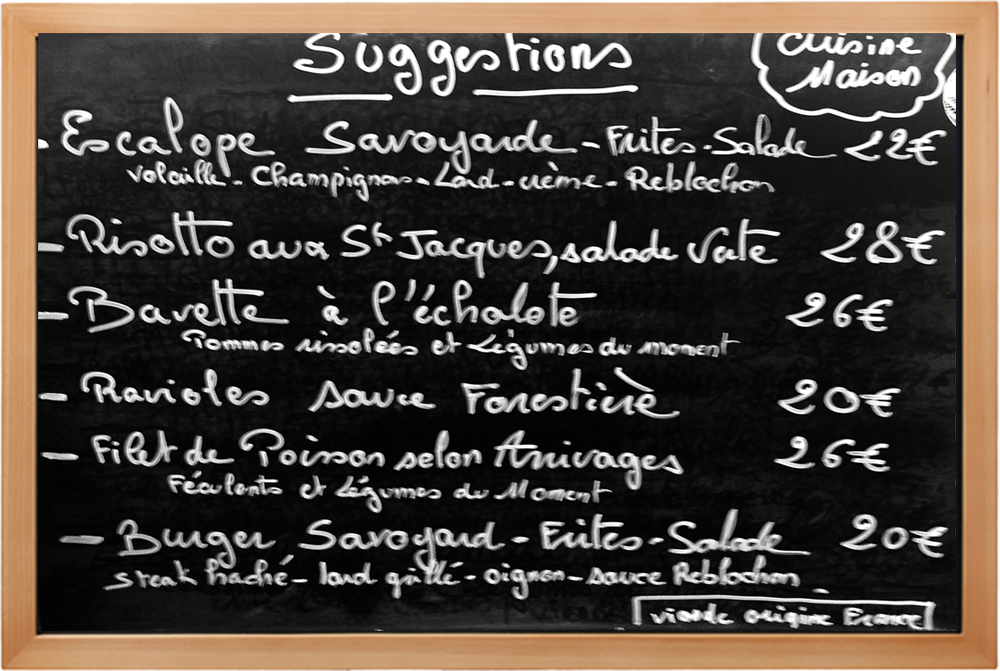 Suggestions
Cuisine
Maison
- Escalope Savoyarde - Frites - Salade 22€
volaille - Champignons - Lard - crème - Reblochon
- Risotto aux St Jacques, salade Verte 28€
- Bavette à l'échalote 26€
Pommes rissolées et Légumes du moment
- Ravioles sauce Forestière 20€
- Filet de Poisson selon Arrivages 26€
Féculents et Légumes du Moment
- Burger Savoyard - Frites - Salade 20€
steak haché - lard grillé - oignon - sauce Reblochon
viande origine France